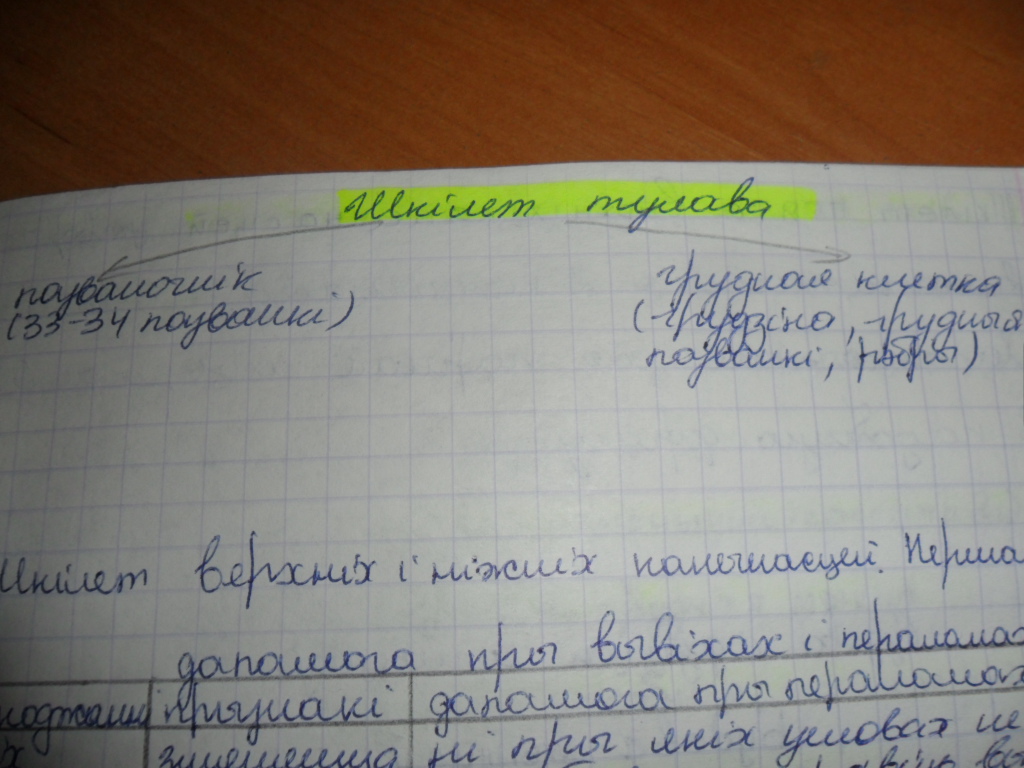 Шкілет тулава
пазваночнік
(33-34 пазванкі)
грудная клетка
(грудзіна, грудныя
пазванкі, рэбры)
Шкілет верхніх і ніжніх канечнасцей. Перша
дапамога пры вывіхах і пераломах
прызнакі дапамога пры пераломах
х змяшэнне ні пры якіх умовах не